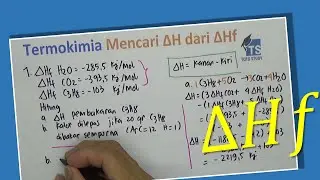 Termokimia Mencari ΔH dari ΔHf
YTS
1. ΔHf H2O = -285,5 Kj/mol
ΔHf CO2 = -393,5 Kj/mol
ΔHf C3H8 = -103 Kj/mol
Hitung
a. ΔH pembakaran C3H8
b. Kalor dilepas jika 20 gr C3H8
dibakar sempurna (Ar C=12 H=1)
b.
ΔH = Kanan - Kiri
a. C3H8 + 5O2 → 3CO2 + 4H2O
ΔH = (3 ΔHf CO2 + 4 ΔHf H2O)
ΔH
= -2219,5 Kj
ΔHf